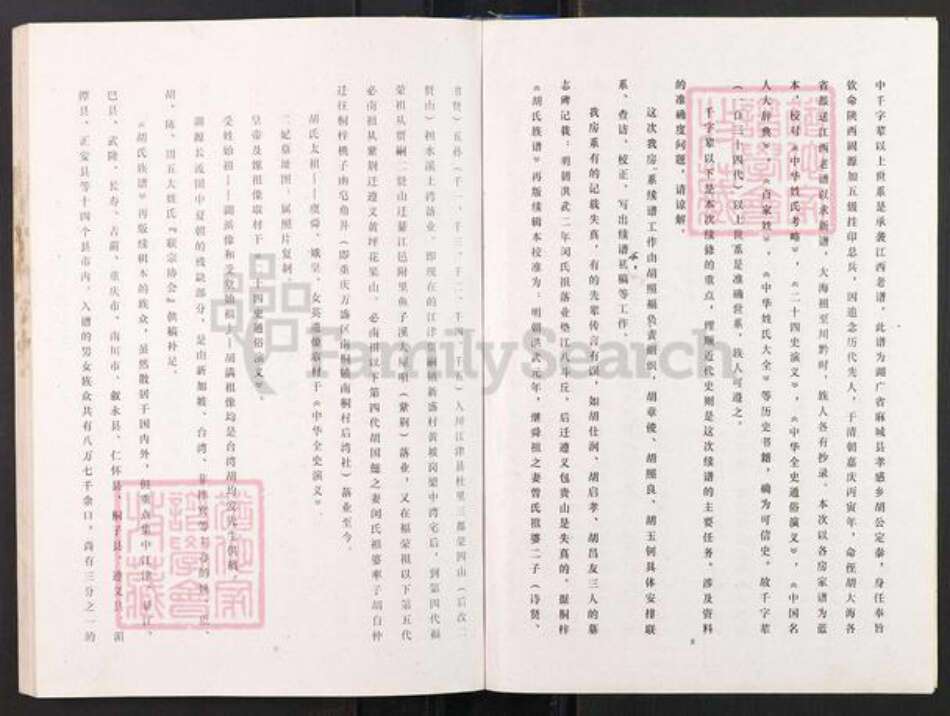 中千字辈以上世系是承袭江西老谱，此谱为湖广省麻城县孝感乡胡公定泰，身任奉旨
钦命陕西固源加五级挂印总兵，因追念历代先人，于清朝嘉庆丙寅年，命侄胡大海各
省都送江西老谱以求新谱，大海祖至川黔时，族人各有抄录。本次以各房家谱为蓝
本，校对《中华姓氏考略》，《二十四史演义》，《中华全史通俗演义》，《中国名
人大辞典》，《百家姓》，《中华姓氏大全》等历史书籍，确为可信史。故千字辈
（自三十四代）以上世系是准确世系，族人可遵之。
千字辈以下是本次续修的重点，理顺近代史则是这次续谱的主要任务。涉及资料
的准确度问题，请谅解。
这次我房系续谱工作由胡照福负责组织，胡章俊、胡照良、胡玉钊具体安排联
系、查访、校正、写出续谱底稿等工作。
我房系有的记载失真，有的先辈传言有误，如胡仕润、胡启孝、胡昌友三人的墓
志碑记载：明朝洪武二年闵氏祖落业垫江八斗丘，后迁遵义包贵山是失真的。据桐梓
《胡氏族谱》再版续辑本校准为：明朝洪武元年，继舜祖之妻曾氏祖婆二子（诗贤、
书贤）五孙（千一、千三、千二、千）入川江津县杜里三都荣四山（后改二
贤山）担水溪上湾落业，即现在的江津镇新盛村黄坡岗梁中湾宅后，到第四代福
荣祖从贾嗣二贤山迁綦江邑附里鱼子溪大地名明（紫荆）落业，又在福荣祖以下第五代
必南祖从紫荆迁遵义黄坪花果山。必南祖以下第四代胡国翘之妻闵氏祖婆率子胡自仲
迁往桐梓桃子南屯角井（即重庆万盛区南桐镇南桐村后湾社）落业至今。
胡氏太祖——虞舜、娥皇、女英遗像取材于《中华全史演义》。
二妃墓址图，属照片复制。
皇帝及馔祖像取材于二十四史通俗演义》。
受姓始祖——满祖像和受皇始祖——胡满祖像均是台湾胡均发先生供稿。
渊源长流图中夏朝的残缺部分，是由新加坡、台湾、菲律宾等
胡、陈、田五大姓氏『联宗协会』供稿补足。
《胡氏族谱》再版续辑本的族众，虽然散居于国内外，但重点集中江津、綦江、
巴县、武隆、长寿、古蔺、重庆市、南川市、叙永县、仁怀县、桐子县、遵义县、湄
潭县、正安县等十四个县市内。入谱的男女族众共有八万七千余口，尚有三分之一的
FamilySearch